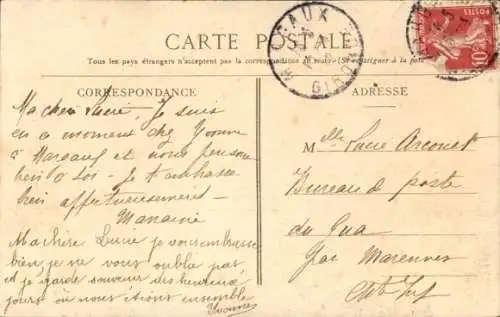 CARTE POSTALE
Tous les pays étrangers n'acceptent pas la correspondance au recto (Se renseigner à la poste
CORRESPONDANCE
ADRESSE
POSTES
10c
GIRONDE
Ma chère Lucie, Je suis
en ce moment chez Yvonne
à Margaux et nous pensons
bien à toi. Je t'embrasse
bien affectueusement
Ma chère Lucie je vous embrasse
bien je ne vous oublie pas
et je garde souvenir des heureux
jours où nous étions ensemble
Yvonne
Mlle Lucie Arcouet
Bureau de poste
du Gua
par Marennes
Ch Inf